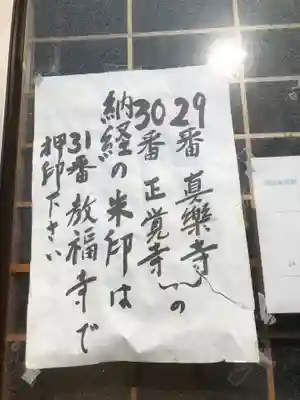 29番 真樂寺の
30番 正覚寺
納経の米印は
31番教福寺で
押印下さい